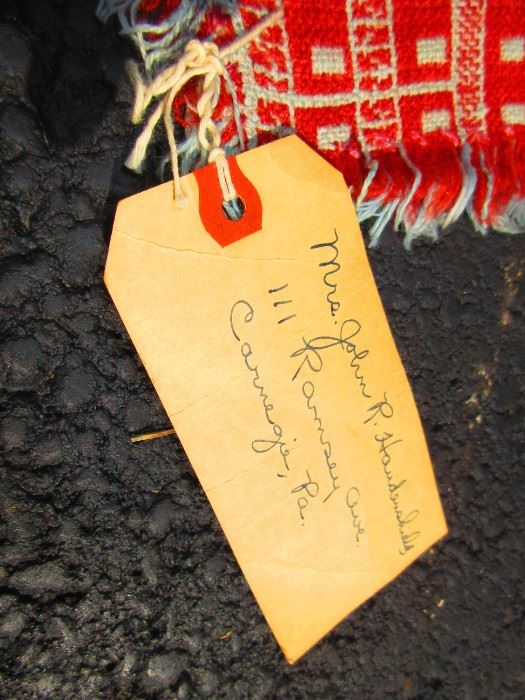 Mrs. John R. Haudenshild
111 Ramsey Ave.
Carnegie, Pa.